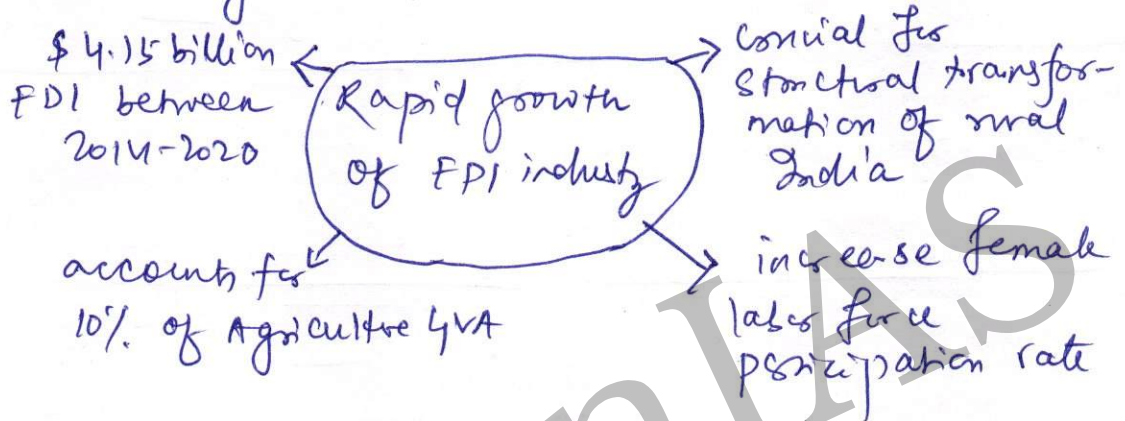 $ 4.15 billion
FDI between
2014-2020
Rapid growth
of FPI industry
crucial for
structural transfor-
mation of rural
India
accounts for
10% of Agriculture GVA
increase female
labor force
participation rate
IAS